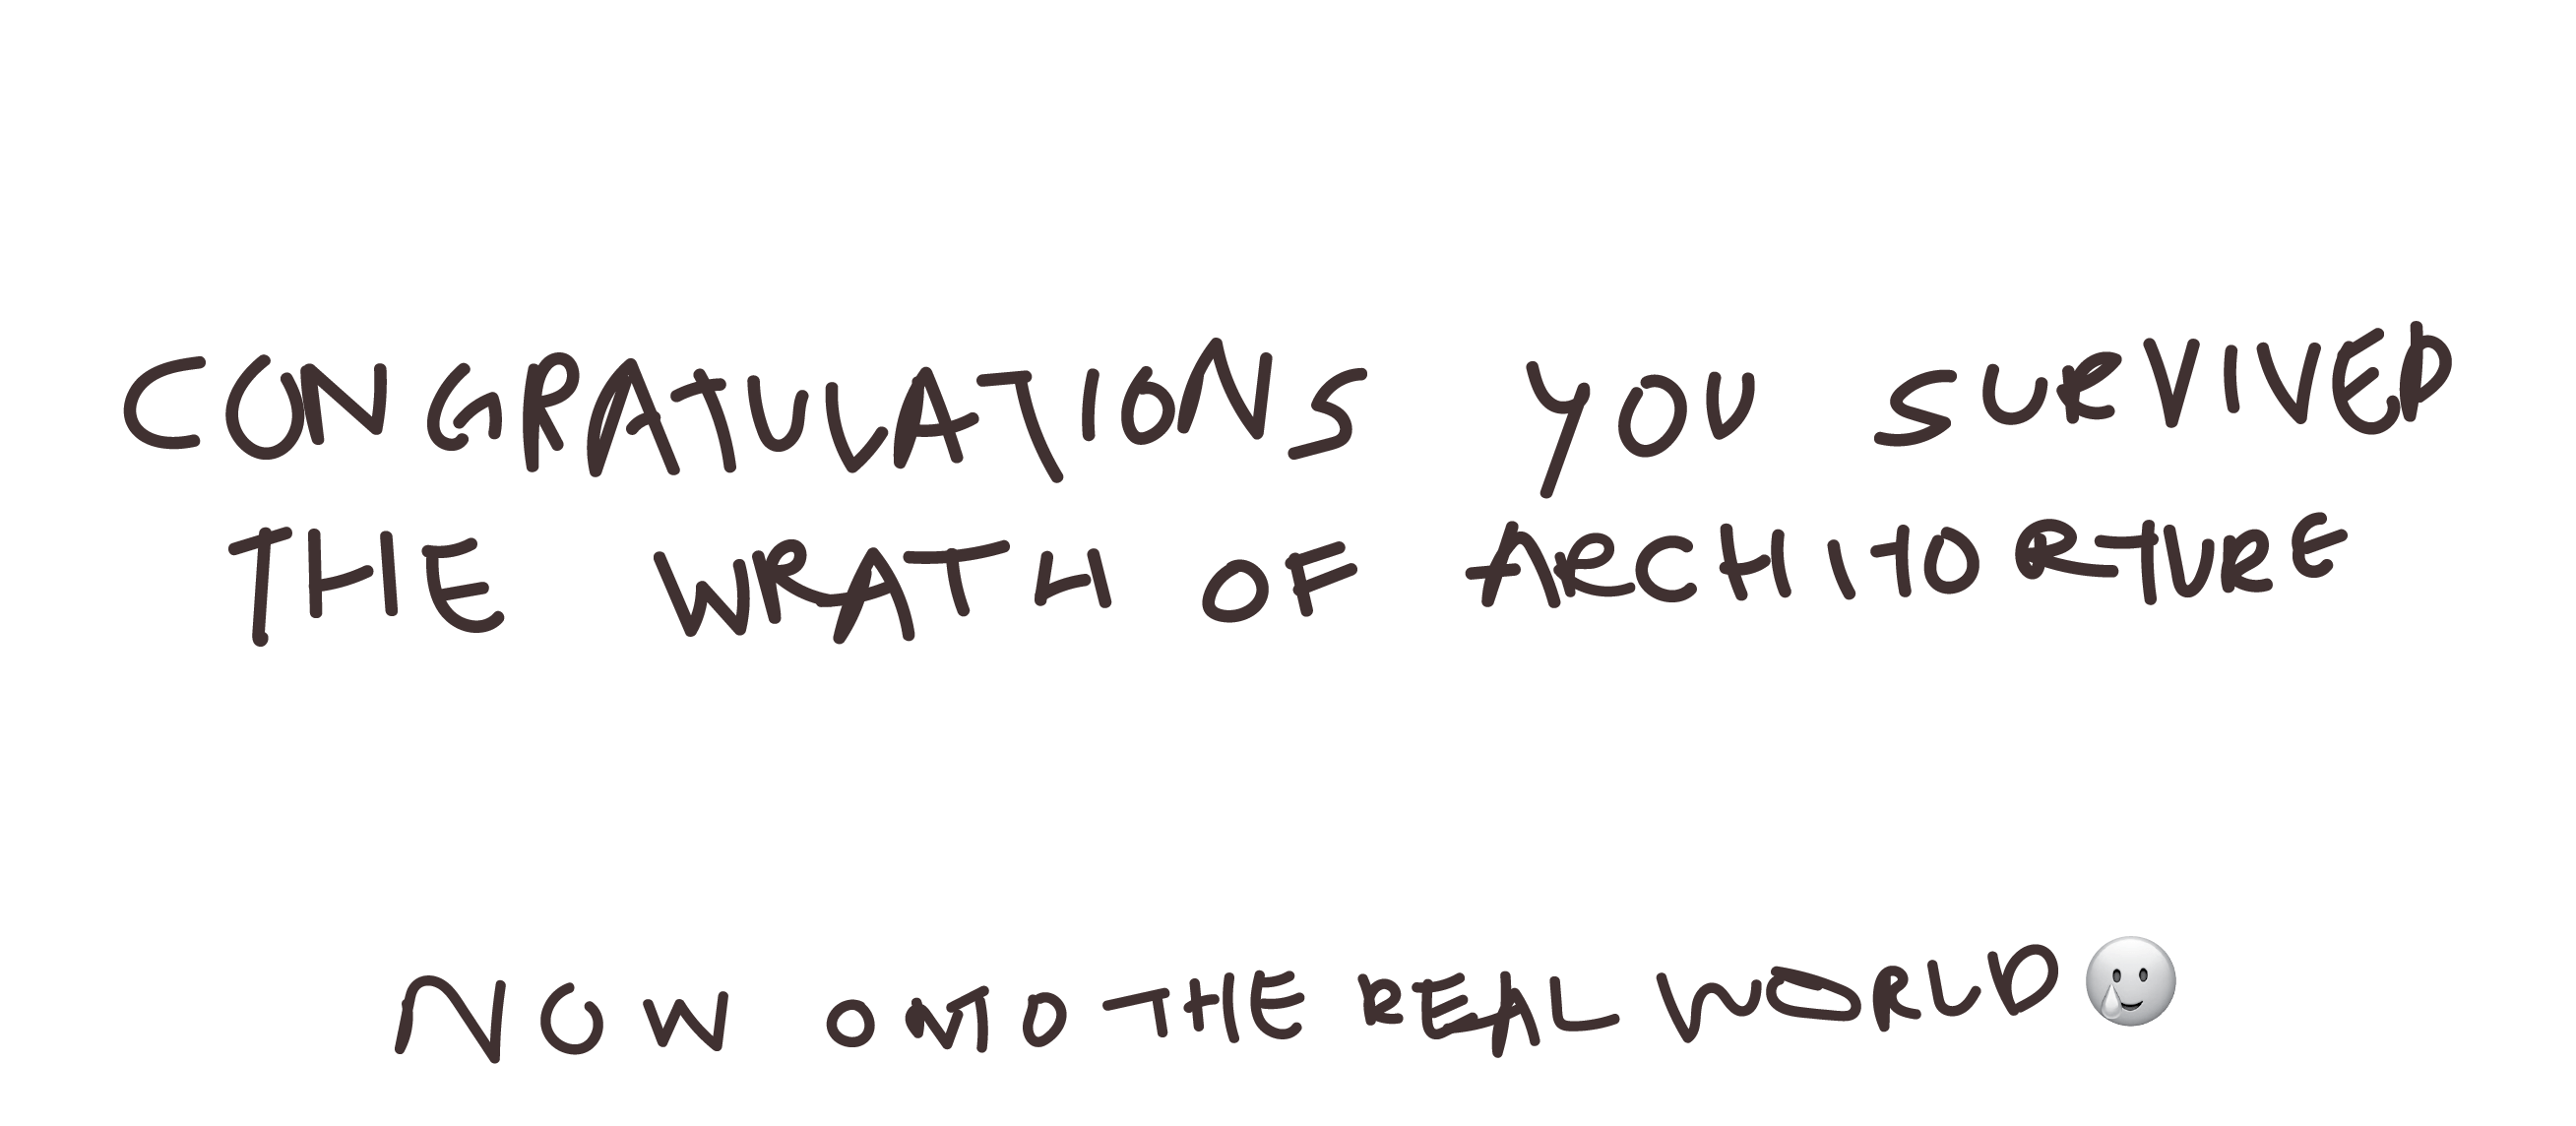 CONGRATULATIONS YOU SURVIVED
THE WRATH OF ARCHITORTURE
NOW ONTO THE REAL WORLD🥲